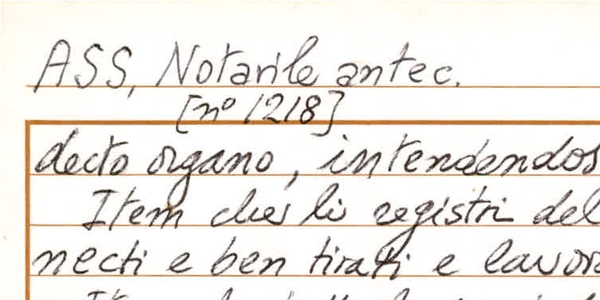 ASS, Notarile antec.
[nº 1218]
decto organo, intendendos
Item che li registri del
necti e ben tirati e lavora
Item